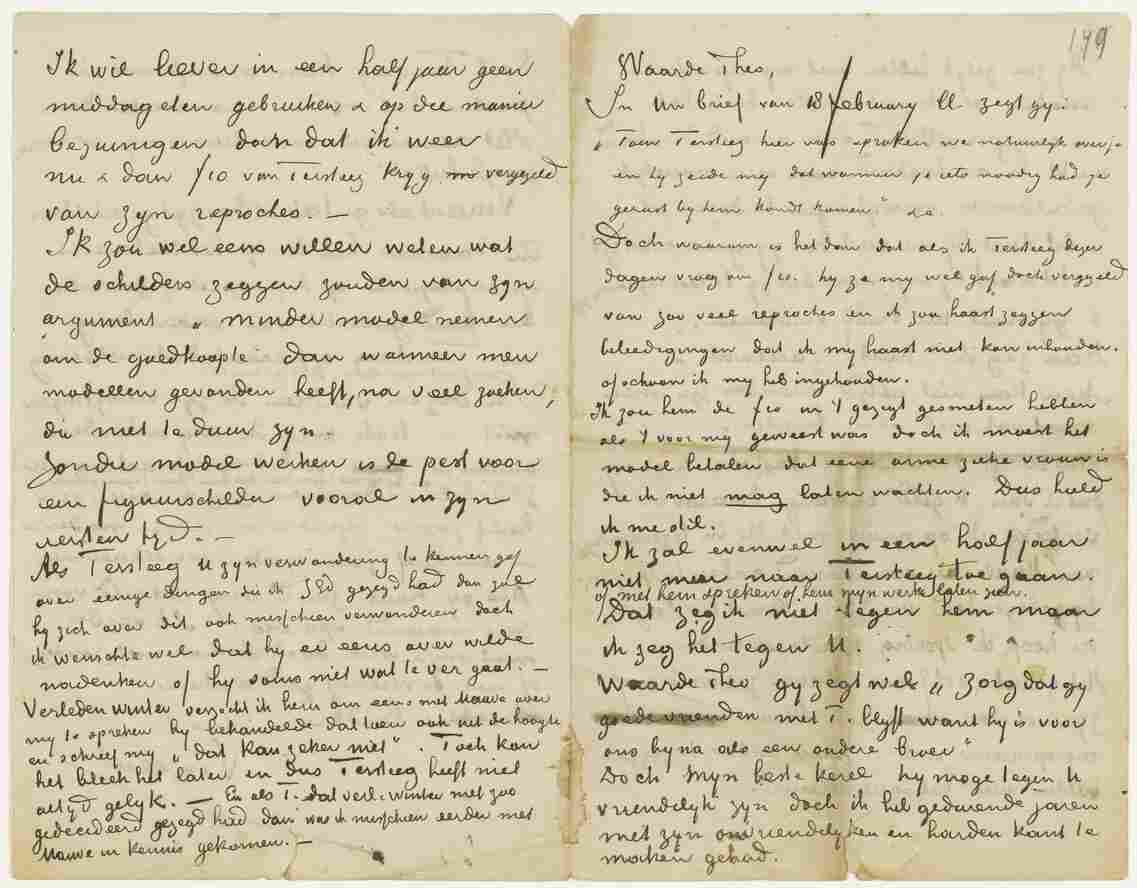 Ik wil liever in een half jaar geen
middageten gebruiken & op die manier
bezuinigen dan dat ik weer
nu & dan f10 van Tersteeg kryg vergezeld
van zyn reproches. —
Ik zou wel eens willen weten wat
de schilders zeggen zouden van zyn
argument „minder model nemen
om de goedkoopte" dan wanneer men
modellen gevonden heeft, na veel zoeken,
die niet te duur zyn.
Zonder model werken is de pest voor
een figuurschilder vooral in zyn
eersten tyd. —
Als Tersteeg U zyn verwondering te kennen gaf
over eenige dingen die ik ZEd gezegd had dan zal
hy zich over dit ook misschien verwonderen doch
ik wenschte wel dat hy er eens over wilde
nadenken of hy soms niet wat te ver gaat. —
Verleden winter verzocht ik hem om eens met Mauve over
my te spreken hy behandelde dat toen ook uit de hoogte
en schreef my „dat kan zeker niet". Toch kon
het bleek het later en dus Tersteeg heeft niet
altyd gelyk. — En als T. dat verl. winter niet zoo
gedecideerd gezegd had dan was ik misschien eerder met
Mauve in kennis gekomen. —
179
Waarde Theo,
In Uw brief van 18 february ll. zegt gy:
„Toen Tersteeg hier was spraken we natuurlyk over je
en hy zeide my dat wanneer je iets noodig had je
gerust by hem kondt komen" &c.
Doch waarom is het dan dat als ik Tersteeg dezer
dagen vroeg om f10. hy ze my wel gaf doch vergezeld
van zoo veel reproches en ik zou haast zeggen
beleedigingen dat ik my haast niet kon inhouden.
ofschoon ik my heb ingehouden.
Ik zou hem de f10 in 't gezigt gesmeten hebben
als 't voor my geweest was doch ik moest het
model betalen dat eene arme zieke vrouw is
die ik niet mag laten wachten. Dus hield
ik me stil.
Ik zal evenwel in een half jaar
niet meer naar Tersteeg toe gaan.
of met hem spreken of hem myn werk laten zien.
Dat zeg ik niet tegen hem maar
ik zeg het tegen U.
Waarde Theo gy zegt wel „zorg dat gy
goede vrienden met T. blyft want hy is voor
ons byna als een oudere broer"
Doch Myn beste kerel hy moge tegen U
vriendelyk zyn doch ik heb gedurende jaren
met zyn onvriendelyken en harden kant te
maken gehad.